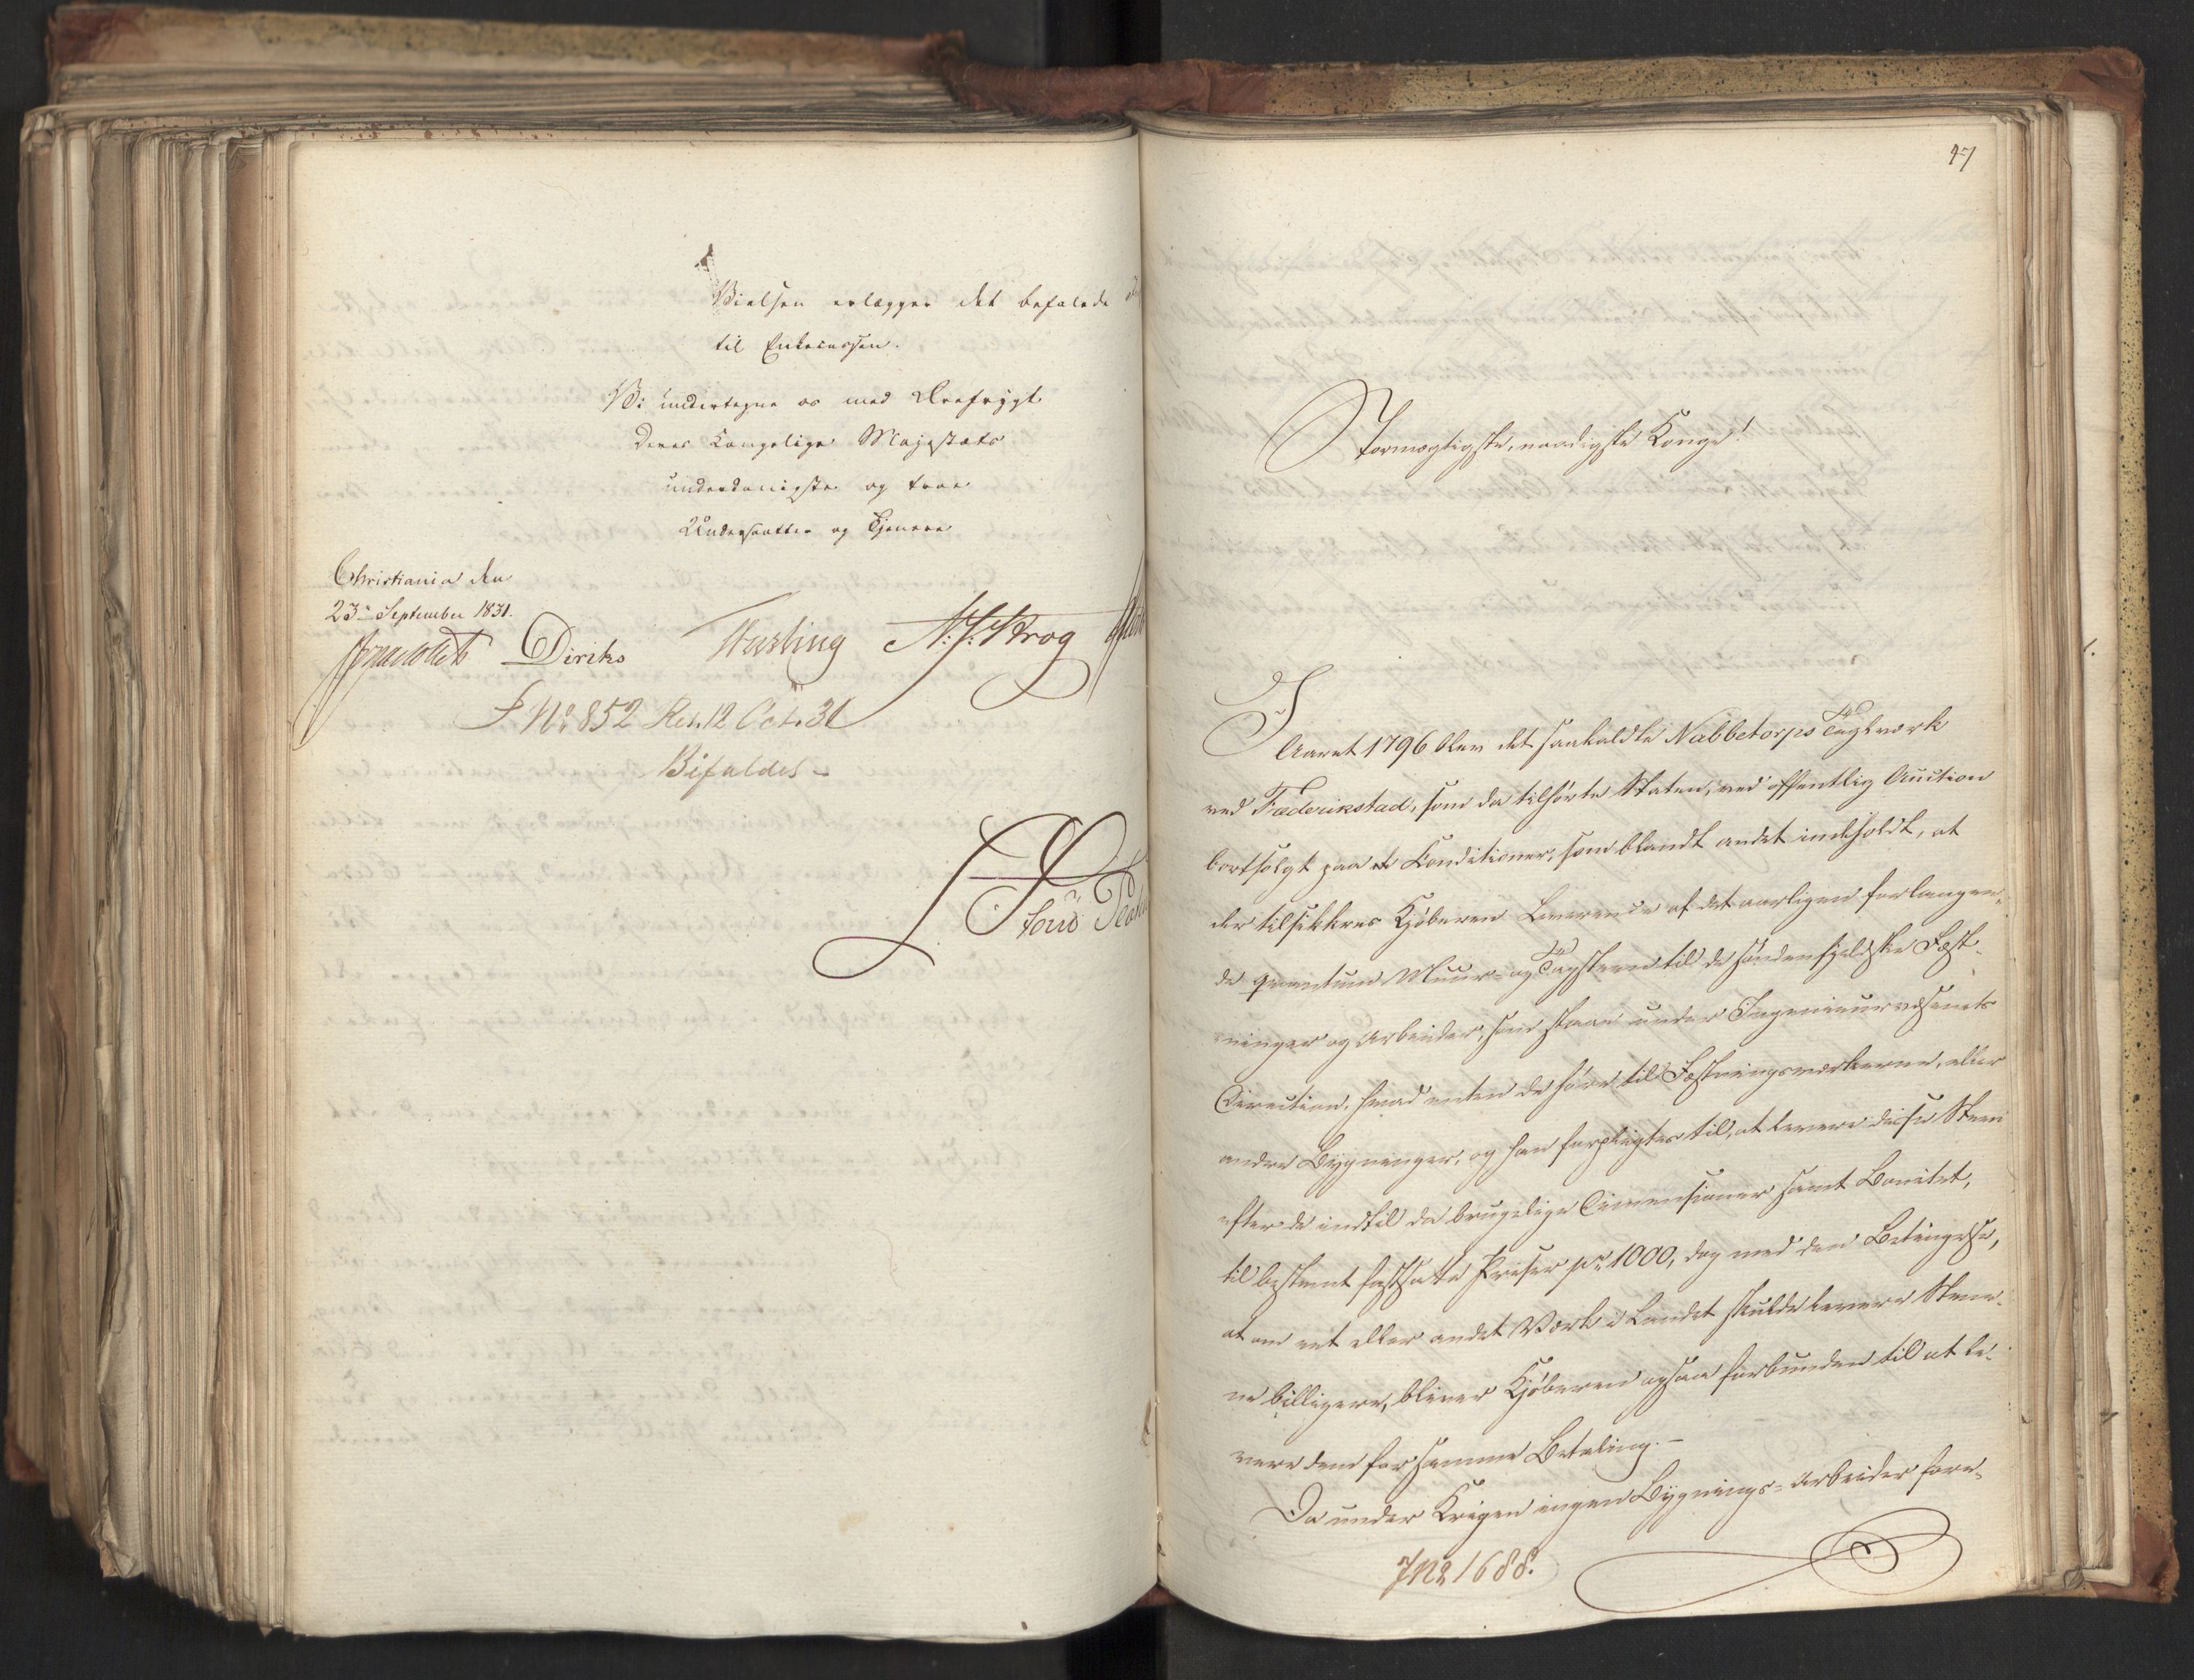 Vielsen erlægger det befalede
til Enkecassen.
Vi undertegne os med Ærefrygt
Deres Kongelige Majestæts
underdanigste og troe
Undersaatter og Tjenere
Christiania den
23de September 1831.
Diriks N. J. Krog
J No 852 Res. 12 Oct. 31
Bifaldes -
47
Stormægtigste, naadigste Konge!
I Aaret 1796 blev det saakaldte Nabbetorps Tæglværk
ved Frederikstad, som da tilhörte Staten, ved offentlig Auction
bortsolgt paa Conditioner, som blandt andet indeholdt, at
der tilsikkres Kjöberen Leverence af det aarligen forlangen-
de qvantum Muur- og Tagsteen til de söndenfjeldske Fæst-
ninger og Arbeider, som staae under Ingenieurvæsenets
Direction, hvad enten de höre til Fæstningsværkerne, eller
andre Bygninger, og han forpligtes til, at levere disse Steen
efter de indtil da brugelige Dimensioner samt Bonitet,
til bestemt fastsatte Priser pr 1000, dog med den Betingelse,
at om eet eller andet Værk i Landet skulde levere Stene-
ne billigere, bliver Kjöberen ogsaa forbunden til at le-
vere dem for samme Betaling. -
Da under Krigen ingen Bygnings-Arbeider fore-
J No 1688.